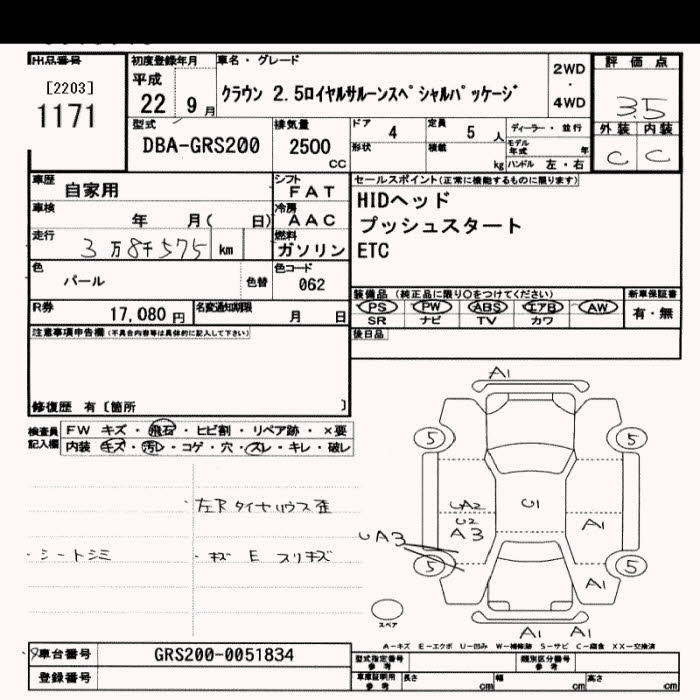 出品番号
[2203]
1171
初度登録年月
平成
22 9月
車名・グレード
クラウン 2.5ロイヤルサルーンスペシャルパッケージ
2WD
・
4WD
評価点
3.5
外装 内装
C C
型式
DBA-GRS200
排気量
2500
CC
ドア 4
定員 5 人
ディーラー・並行
形状
積載 kg
モデル年式 年
ハンドル 左・右
車歴 自家用
シフト FAT
車検 年 月( 日)
冷房 AAC
走行 3万8千575 km
燃料 ガソリン
色 パール
色替
色コード 062
R券 17,080円
名変通知期限 月 日
セールスポイント(正常に機能するものに限ります)
HIDヘッド
プッシュスタート
ETC
装備品 (純正品に限り○をつけてください)
PS PW ABS エアB AW
SR ナビ TV カワ
新車保証書
有・無
後日品
注意事項申告欄(不具合内容等は具体的に記入して下さい)
修復歴 有〔箇所 〕
検査員記入欄
FW キズ・飛石・ヒビ割・リペア跡・×要
内装 キズ・汚レ・コゲ・穴・スレ・キレ・破レ
・左Rタイヤハウス歪
・シートシミ
・キズ E スリキズ
A1
5 5
UA2
U2
A3
U1
A1
UA3
5 5
A1
スペア
A1 A1
A−キズ E−エクボ U−凹み W−補修跡 S−サビ C−腐食 XX−交換済
車台番号 GRS200-0051834
登録番号
型式指定番号
参考
類別区分番号
参考
車庫証明用
参考
長さ cm
幅 cm
高さ cm